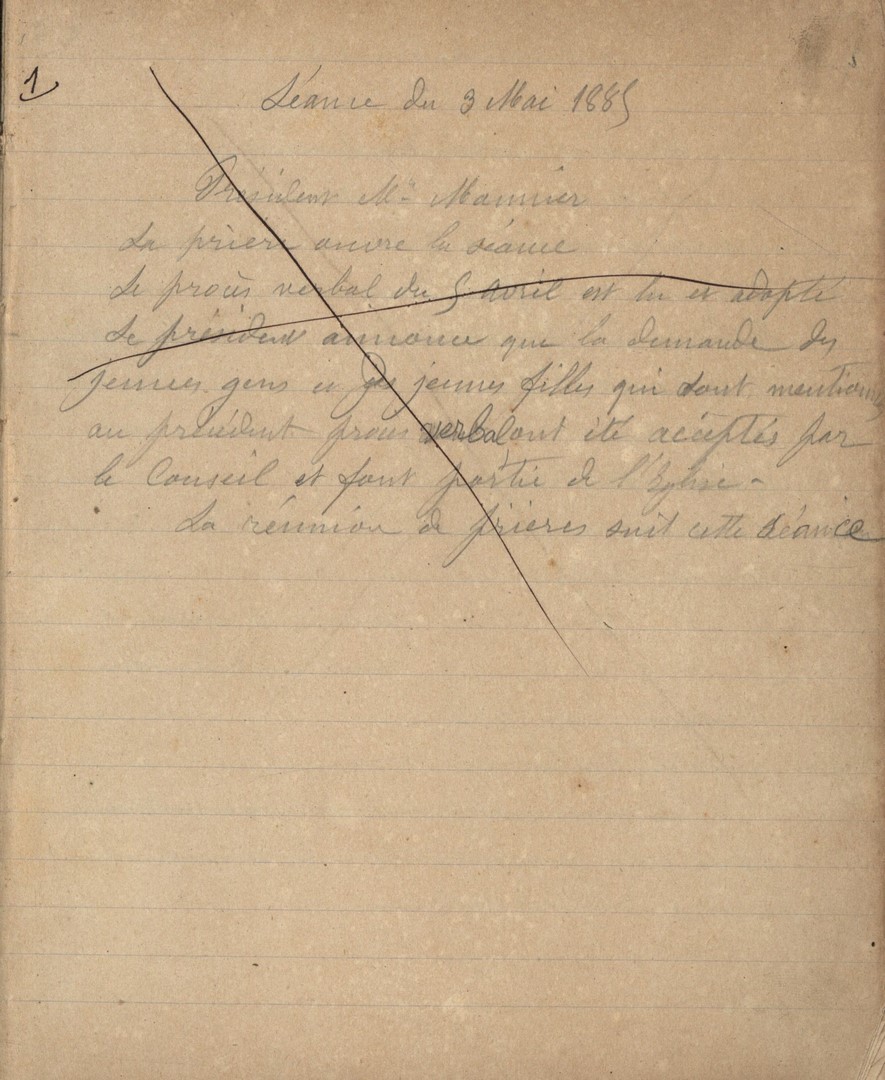 1
Séance du 3 Mai 1885
Président Mr Mounier
La prière ouvre la séance
Le procès verbal du 5 avril est lu et adopté
Le président annonce que la demande des
jeunes gens et des jeunes filles qui sont mentionnés
au précédent procès verbal ont été acceptés par
le Conseil et font partie de l'Eglise -
La réunion de prières suit cette séance